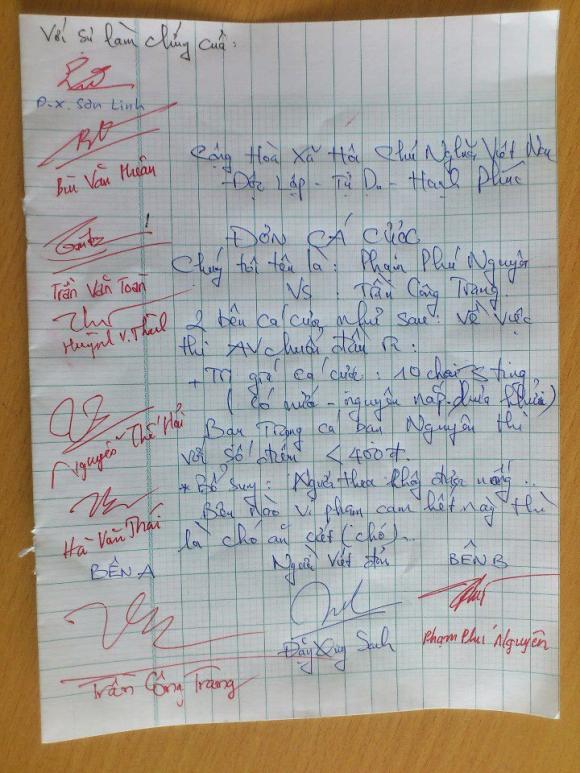 Với sự làm chứng của:
Đ.X. Sơn Linh
Bùi Văn Nhân
Cộng Hoà Xã Hội Chủ Nghĩa Việt Nam
Độc Lập - Tự Do - Hạnh Phúc
ĐƠN CÁ CƯỢC
Trần Văn Toàn
Chúng tôi tên là: Phạm Phú Nguyên
VS : Trần Công Trang.
Huỳnh V. Thành
2 bên cá cược như sau: Về việc
thi AV chuẩn đầu ra:
+ Trị giá cá cược: 10 chai String
(có nước - nguyên nắp - chưa khui)
Nguyễn Thế Hải
Bạn Trang cá bạn Nguyên thi
với số điểm < 400đ.
* Bổ sung: Người thua không được uống...
Hà Văn Thái
Bên nào vi phạm cam kết này thì
là chó ăn cứt (chó)...
BÊN A
Người viết đơn
BÊN B
Trần Công Trang
Sanh
Phạm Phú Nguyên